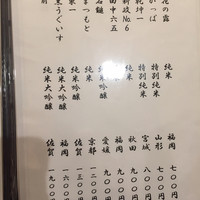 花の露 純米 福岡 七〇〇円
かっぱ 特別純米 山形 七〇〇円
乾坤一 特別純米 宮城 八〇〇円
新政No.6 純米 秋田 九〇〇円
田中六五 純米 福岡 九〇〇円
石鎚 純米吟醸 愛媛 九〇〇円
まつもと 純米 京都
東一 純米大吟醸 佐賀 一三〇〇円
黒うぐいす 純米大吟醸 福岡 一六〇〇円
佐賀 一九〇〇円